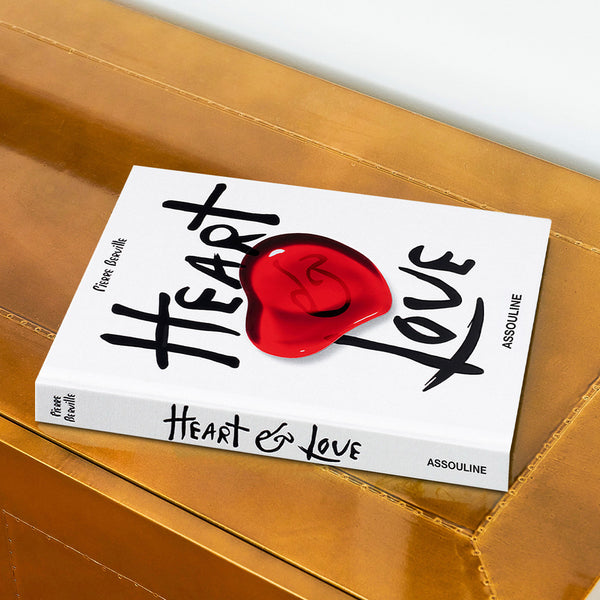 Pierre Berville
HEART
&
LOVE
ASSOULINE
Pierre
Berville
HEART & LOVE
ASSOULINE